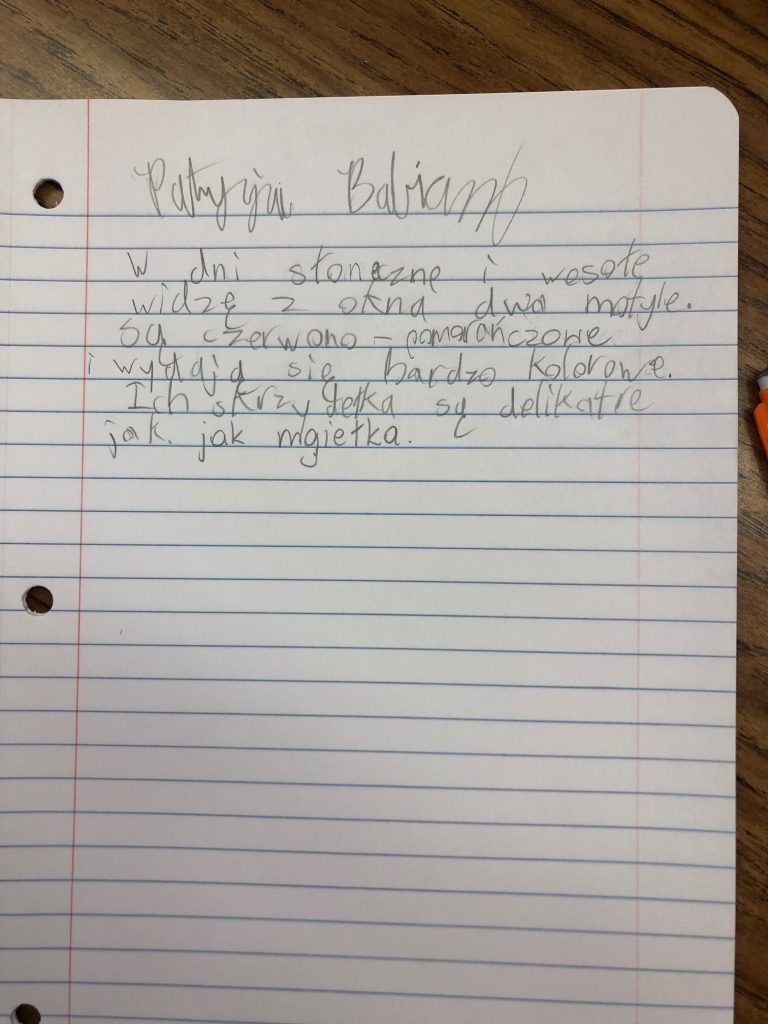 W dni słoneczne i wesołe
widzę z okna dwa motyle.
Są czerwono - pomarańczowe
i wydają się bardzo kolorowe.
Ich skrzydełka są delikatne
jak. jak mgiełka.